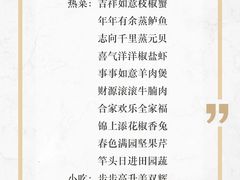 热菜：吉祥如意椒椒蟹
年年有余蒸鲈鱼
志向千里蒸元贝
喜气洋洋椒盐虾
事事如意羊肉煲
财源滚滚牛腩肉
合家欢乐全家福
锦上添花椒香兔
春色满园坚果芹
竿头日进田园蔬
小吃：步步高升美双辉